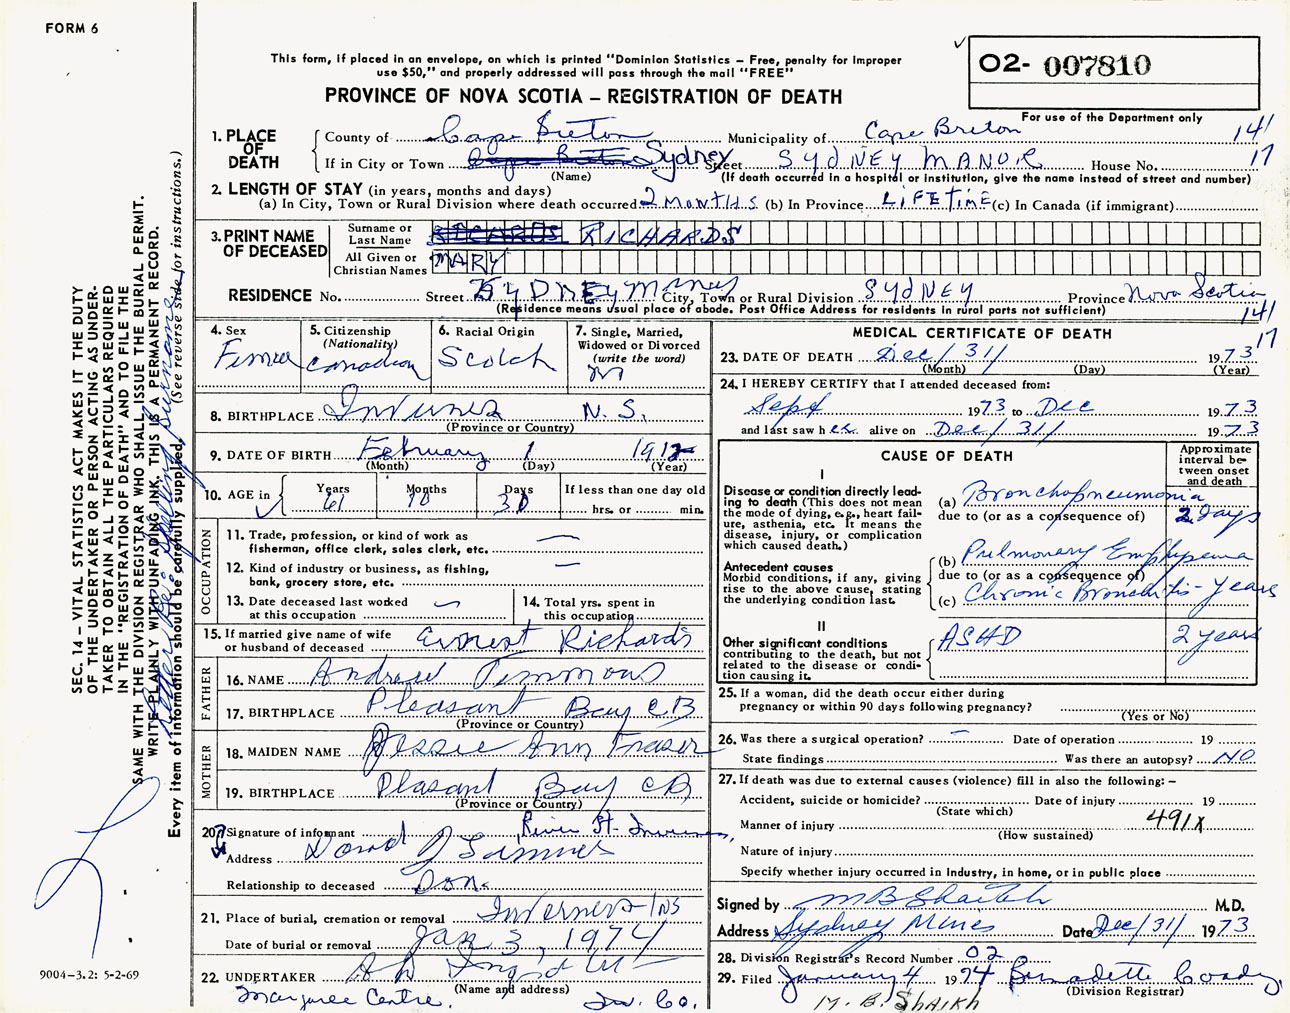 FORM 6
This form, if placed in an envelope, on which is printed "Dominion Statistics – Free, penalty for improper
use $50," and properly addressed will pass through the mail "FREE"
O2- 007810
PROVINCE OF NOVA SCOTIA – REGISTRATION OF DEATH
For use of the Department only
1. PLACE OF DEATH
County of Cape Breton Municipality of Cape Breton 141
If in City or Town Cape Breton Sydney Street SYDNEY MANOR House No. 17
(Name) (If death occurred in a hospital or institution, give the name instead of street and number)
2. LENGTH OF STAY (in years, months and days)
(a) In City, Town or Rural Division where death occurred 2 MONTHS (b) In Province LIFETIME (c) In Canada (if immigrant)
3. PRINT NAME OF DECEASED
Surname or Last Name RICHARDS RICHARDS
All Given or Christian Names MARY
RESIDENCE No. Street SYDNEY Manor City, Town or Rural Division SYDNEY Province Nova Scotia
(Residence means usual place of abode. Post Office Address for residents in rural parts not sufficient) 141
17
4. Sex
5. Citizenship
(Nationality)
6. Racial Origin
7. Single, Married, Widowed or Divorced
(write the word)
Canadian Scotch M
8. BIRTHPLACE Inverness N.S.
(Province or Country)
9. DATE OF BIRTH February 1 1912
(Month) (Day) (Year)
10. AGE in
Years Months Days If less than one day old
61 10 30 hrs. or min.
OCCUPATION
11. Trade, profession, or kind of work as
fisherman, office clerk, sales clerk, etc. —
12. Kind of industry or business, as fishing,
bank, grocery store, etc. —
13. Date deceased last worked
at this occupation —
14. Total yrs. spent in
this occupation
15. If married give name of wife
or husband of deceased Ernest Richards
FATHER
16. NAME Andrew Timmons
17. BIRTHPLACE Pleasant Bay CB
(Province or Country)
MOTHER
18. MAIDEN NAME Jessie Ann Fraser
19. BIRTHPLACE Pleasant Bay CB
(Province or Country)
20. Signature of informant River St. Inverness,
Address
Relationship to deceased Son.
21. Place of burial, cremation or removal Inverness NS
Date of burial or removal Jan 3, 1974
22. UNDERTAKER
(Name and address)
Margaree Centre. Inv. Co.
MEDICAL CERTIFICATE OF DEATH
23. DATE OF DEATH Dec/ 31/ 1973
(Month) (Day) (Year)
24. I HEREBY CERTIFY that I attended deceased from:
Sept 1973 to Dec 1973
and last saw her alive on Dec/ 31/ 1973
CAUSE OF DEATH
Approximate interval between onset and death
I
Disease or condition directly leading to death (This does not mean the mode of dying, e.g., heart failure, asthenia, etc. It means the disease, injury, or complication which caused death.)
(a) Bronchopneumonia 2 days
due to (or as a consequence of)
Antecedent causes
Morbid conditions, if any, giving rise to the above cause, stating the underlying condition last.
(b) Pulmonary Emphysema
due to (or as a consequence of)
(c) Chronic Bronchitis - years
II
Other significant conditions
contributing to the death, but not related to the disease or condition causing it.
ASHD 2 years
25. If a woman, did the death occur either during
pregnancy or within 90 days following pregnancy?
(Yes or No)
26. Was there a surgical operation? — Date of operation 19
State findings Was there an autopsy? NO
27. If death was due to external causes (violence) fill in also the following: –
Accident, suicide or homicide? Date of injury 19
(State which)
Manner of injury 491X
(How sustained)
Nature of injury
Specify whether injury occurred in industry, in home, or in public place
Signed by M B Shaikh M.D.
Address Sydney Mines Date Dec/31/ 1973
28. Division Registrar's Record Number 02
29. Filed January 4 1974 Bernadette Coady
(Division Registrar)
M. B. SHAIKH
SEC. 14 – VITAL STATISTICS ACT MAKES IT THE DUTY
OF THE UNDERTAKER OR PERSON ACTING AS UNDER-
TAKER TO OBTAIN ALL THE PARTICULARS REQUIRED
IN THE "REGISTRATION OF DEATH" AND TO FILE THE
SAME WITH THE DIVISION REGISTRAR WHO SHALL ISSUE THE BURIAL PERMIT.
WRITE PLAINLY WITH UNFADING INK. THIS IS A PERMANENT RECORD.
Every item of information should be carefully supplied. (See reverse side for instructions.)
9004–3.2: 5-2-69